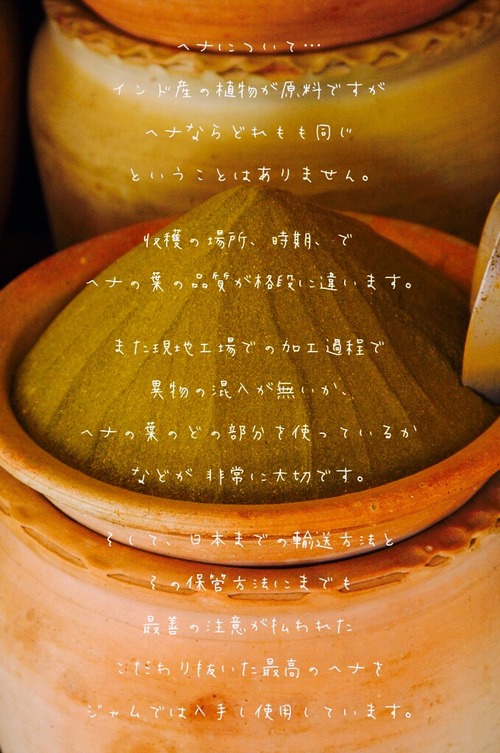 ヘナについて…
インド産の植物が原料ですが
ヘナならどれもも同じ
ということはありません。
収穫の場所、時期、で
ヘナの葉の品質が格段に違います。
また現地工場での加工過程で
異物の混入が無いか、
ヘナの葉のどの部分を使っているか
などが非常に大切です。
そして、日本までの輸送方法と
その保管方法にまでも
最善の注意が払われた
こだわり抜いた最高のヘナを
ジャムでは入手し使用しています。